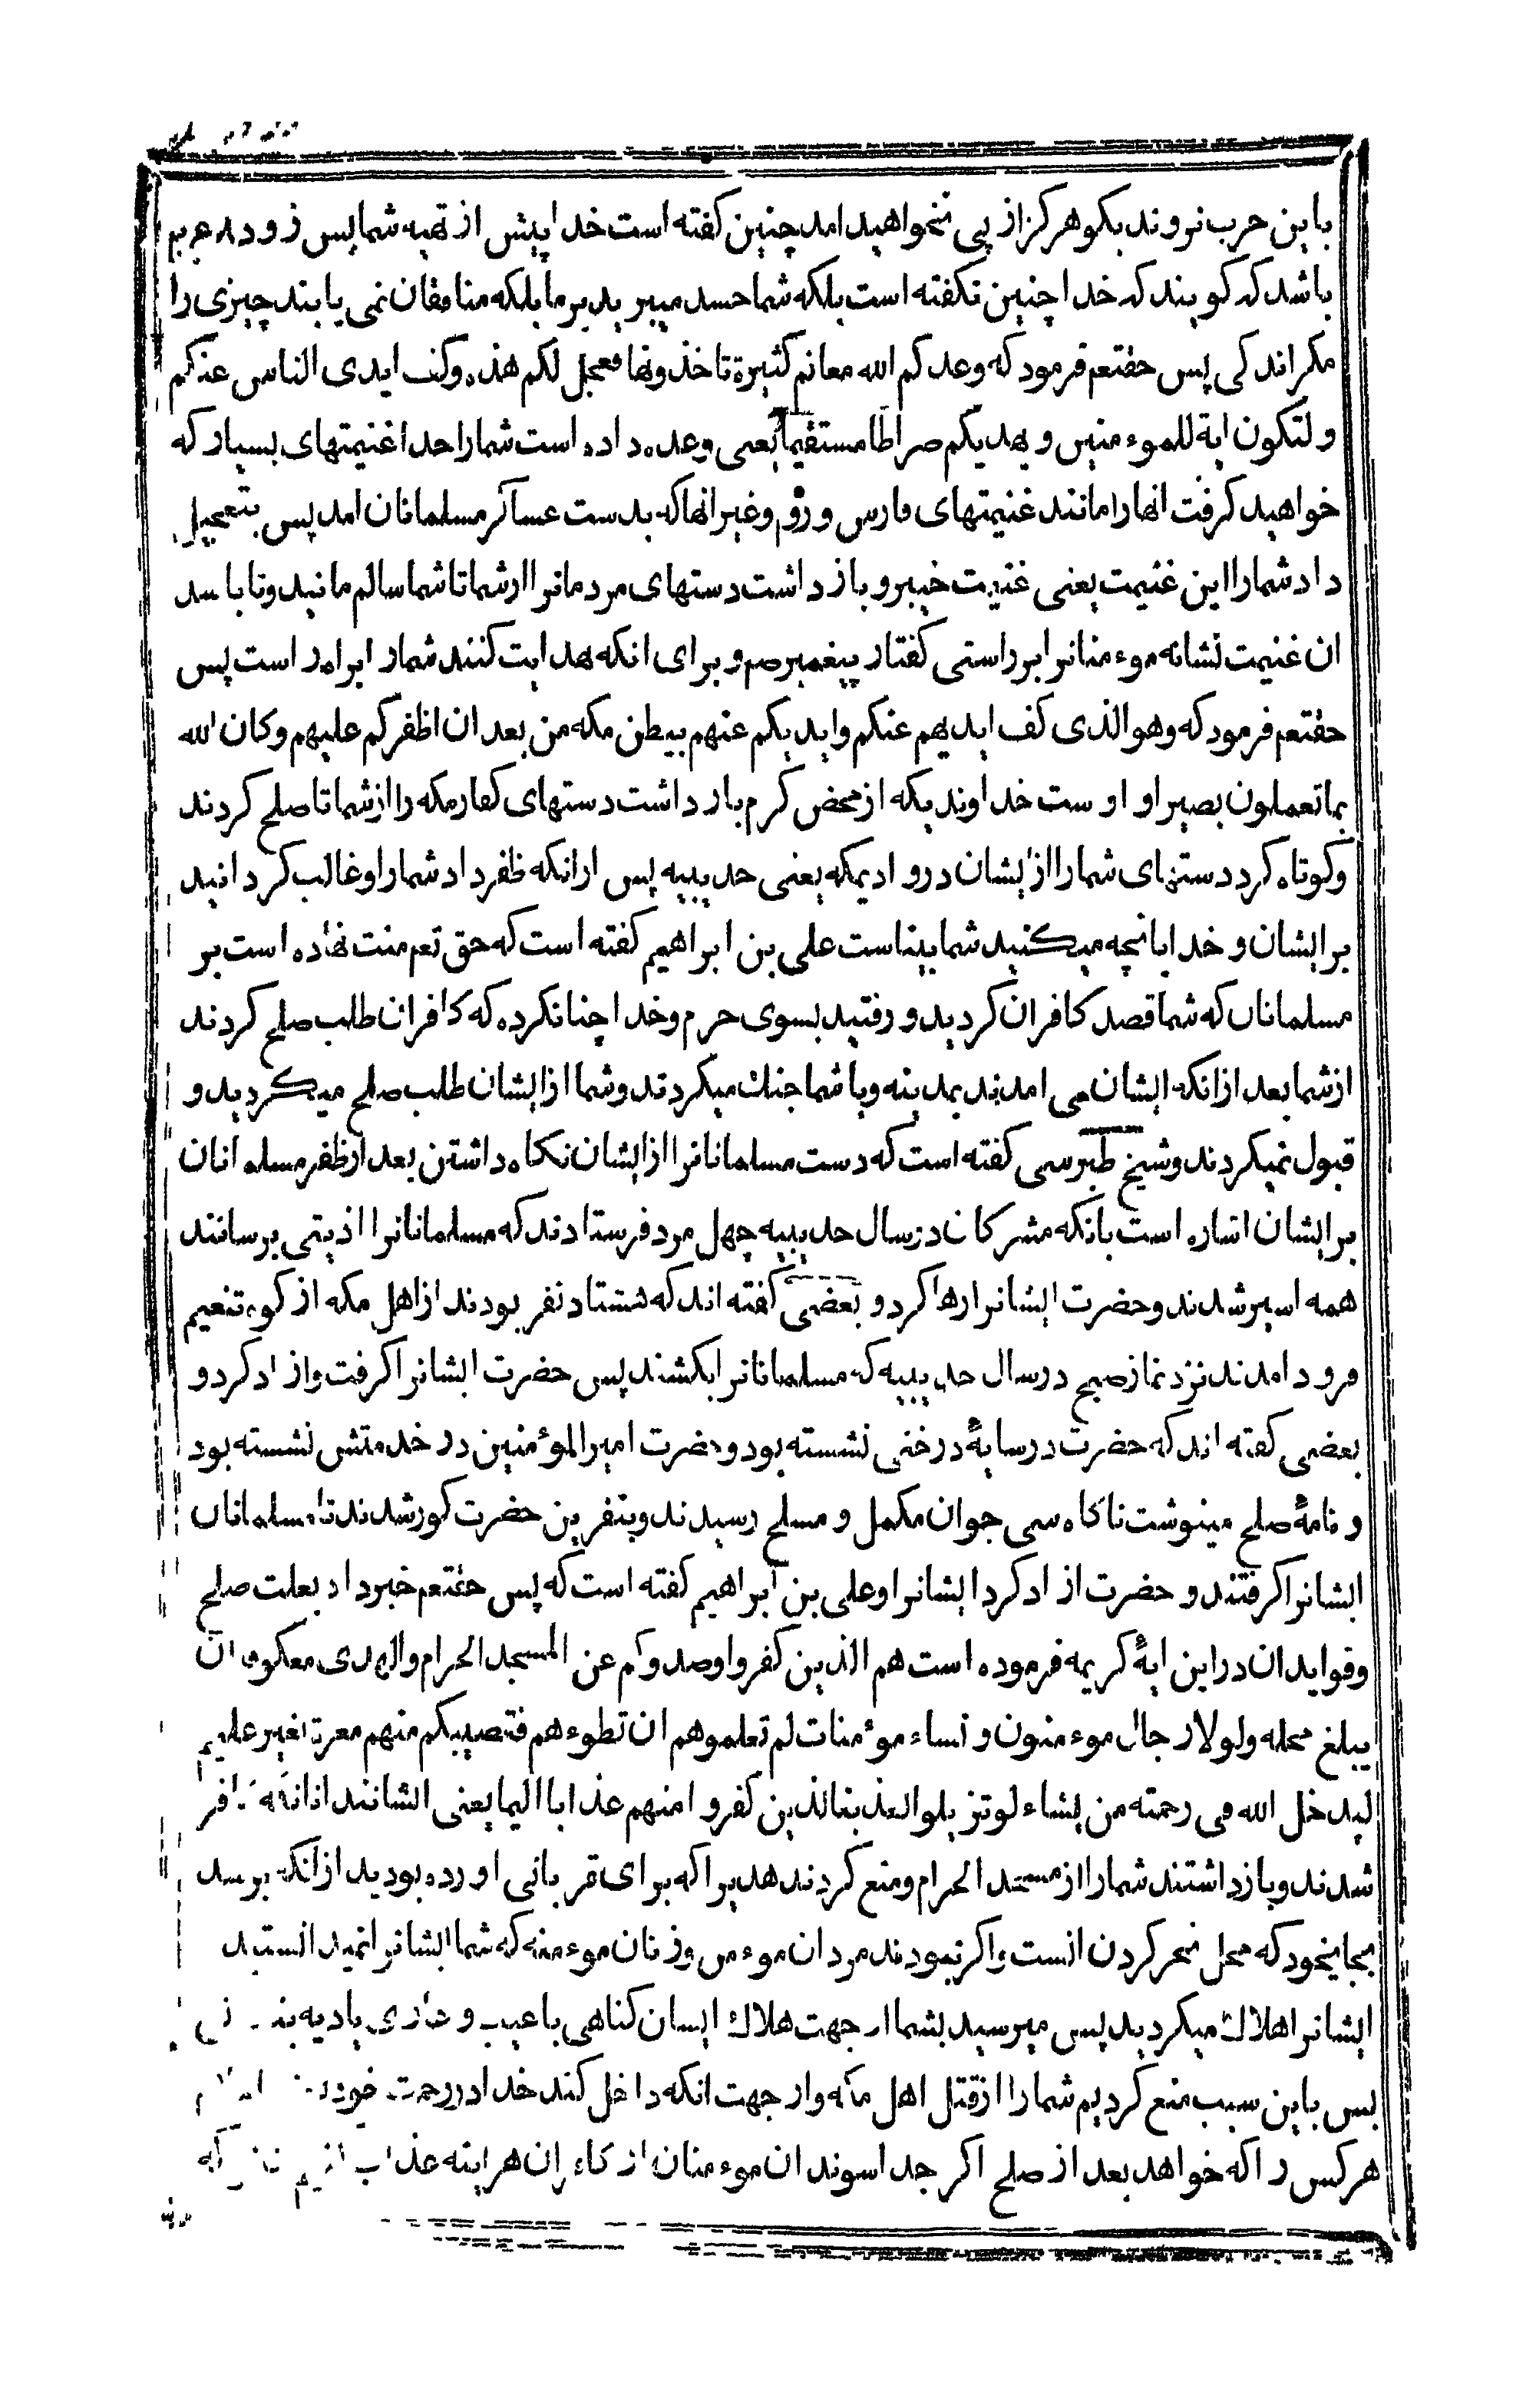 باین حرب نروند بکو هرکز از پی نخواهید امد چنین کفته است خدا پیش از تهیه شما پس زود
باشد که کویند که خدا چنین نکفته است بلکه شما حسد میبرید بر ما بلکه منافقان نمی یابند چیزی را
مکر اندکی پس حقتعم فرمود که وعدکم الله مغانم کثیرة تاخذونها فعجل لکم هذه وکف ایدی الناس عنکم
و لتکون ایة للموءمنین و یهدیکم صراطا مستقیما یعنی وعده داده است شما را خدا غنیمتهای بسیار که
خواهید کرفت انها را مانند غنیمتهای فارس و روم و غیر انها که بدست عساکر مسلمانان امد پس بتعجیل
داد شما را این غنیمت یعنی غنیمت خیبر و باز داشت دستهای مردمانرا از شما تا شما سالم مانید و تا باشد
ان غنیمت نشانه موءمنانرا بر راستی کفتار پیغمبر صم و برای انکه هدایت کنند شما را براه راست پس
حقتعم فرمود که وهو الذی کف ایدیهم عنکم و ایدیکم عنهم ببطن مکه من بعد ان اظفرکم علیهم وکان الله
بما تعملون بصیرا و اوست خداوندیکه از محض کرم باز داشت دستهای کفار مکه را از شما تا صلح کردند
و کوتاه کرد دستهای شما را از ایشان در وادیمکه یعنی حدیبیه پس از انکه ظفر داد شما را و غالب کردانید
بر ایشان و خدا بانچه میکنید شما بیناست علی بن ابراهیم کفته است که حق تعم منت نهاده است بر
مسلمانان که شما قصد کافران کردید و رفتید بسوی حرم و خدا چنان کرده که کافران طلب صلح کردند
از شما بعد از انکه ایشان می امدند بمدینه و با شما جنك میکردند و شما از ایشان طلب صلح میکردید و
قبول نمیکردند و شیخ طبرسی کفته است که دست مسلمانانرا از ایشان نکاه داشتن بعد از ظفر مسلمانان
بر ایشان اشاره است بانکه مشرکان در سال حدیبیه چهل مرد فرستادند که مسلمانانرا اذیتی برسانند
همه اسیر شدند و حضرت ایشانرا رها کرد و بعضی کفته اند که هشتاد نفر بودند از اهل مکه از کوه تنعیم
فرود امدند نزد نماز صبح در سال حدیبیه که مسلمانانرا بکشند پس حضرت ایشانرا کرفت و ازاد کرد و
بعضی کفته اند که حضرت در سایهٔ درختی نشسته بود و حضرت امیر الموٴمنین در خدمتش نشسته بود
و نامهٔ صلح مینوشت ناکاه سی جوان مکمل و مسلح رسیدند و بنفرین حضرت کور شدند تا مسلمانان
ایشانرا کرفتند و حضرت ازاد کرد ایشانرا و علی بن ابراهیم کفته است که پس حقتعم خبر داد بعلت صلح
و فواید ان در این ایهٔ کریمه فرموده است هم الذین کفروا و صدوکم عن المسجد الحرام و الهدی معکوفا ان
یبلغ محله و لولا رجال موءمنون و نساء موٴمنات لم تعلموهم ان تطوءهم فتصیبکم منهم معرة بغیر علم
لیدخل الله فی رحمته من یشاء لو تزیلوا لعذبنا الذین کفروا منهم عذابا الیما یعنی ایشانند انانکه کافر
شدند و باز داشتند شما را از مسجد الحرام و منع کردند هدیرا که برای قربانی اورده بودید از انکه برسد
بجایخود که محل نحر کردن انست و اکر نبودند مردان موءمن و زنان موءمنه که شما ایشانرا نمیدانستید
ایشانرا هلاك میکردید پس میرسید بشما از جهت هلاك ایشان کناهی یا عیب و عاری یا دیه
پس باین سبب منع کردیم شما را از قتل اهل مکه و از جهت انکه داخل کند خدا در رحمت خود
هر کس را که خواهد بعد از صلح اکر جدا شوند ان موءمنان از کافران هراینه عذاب